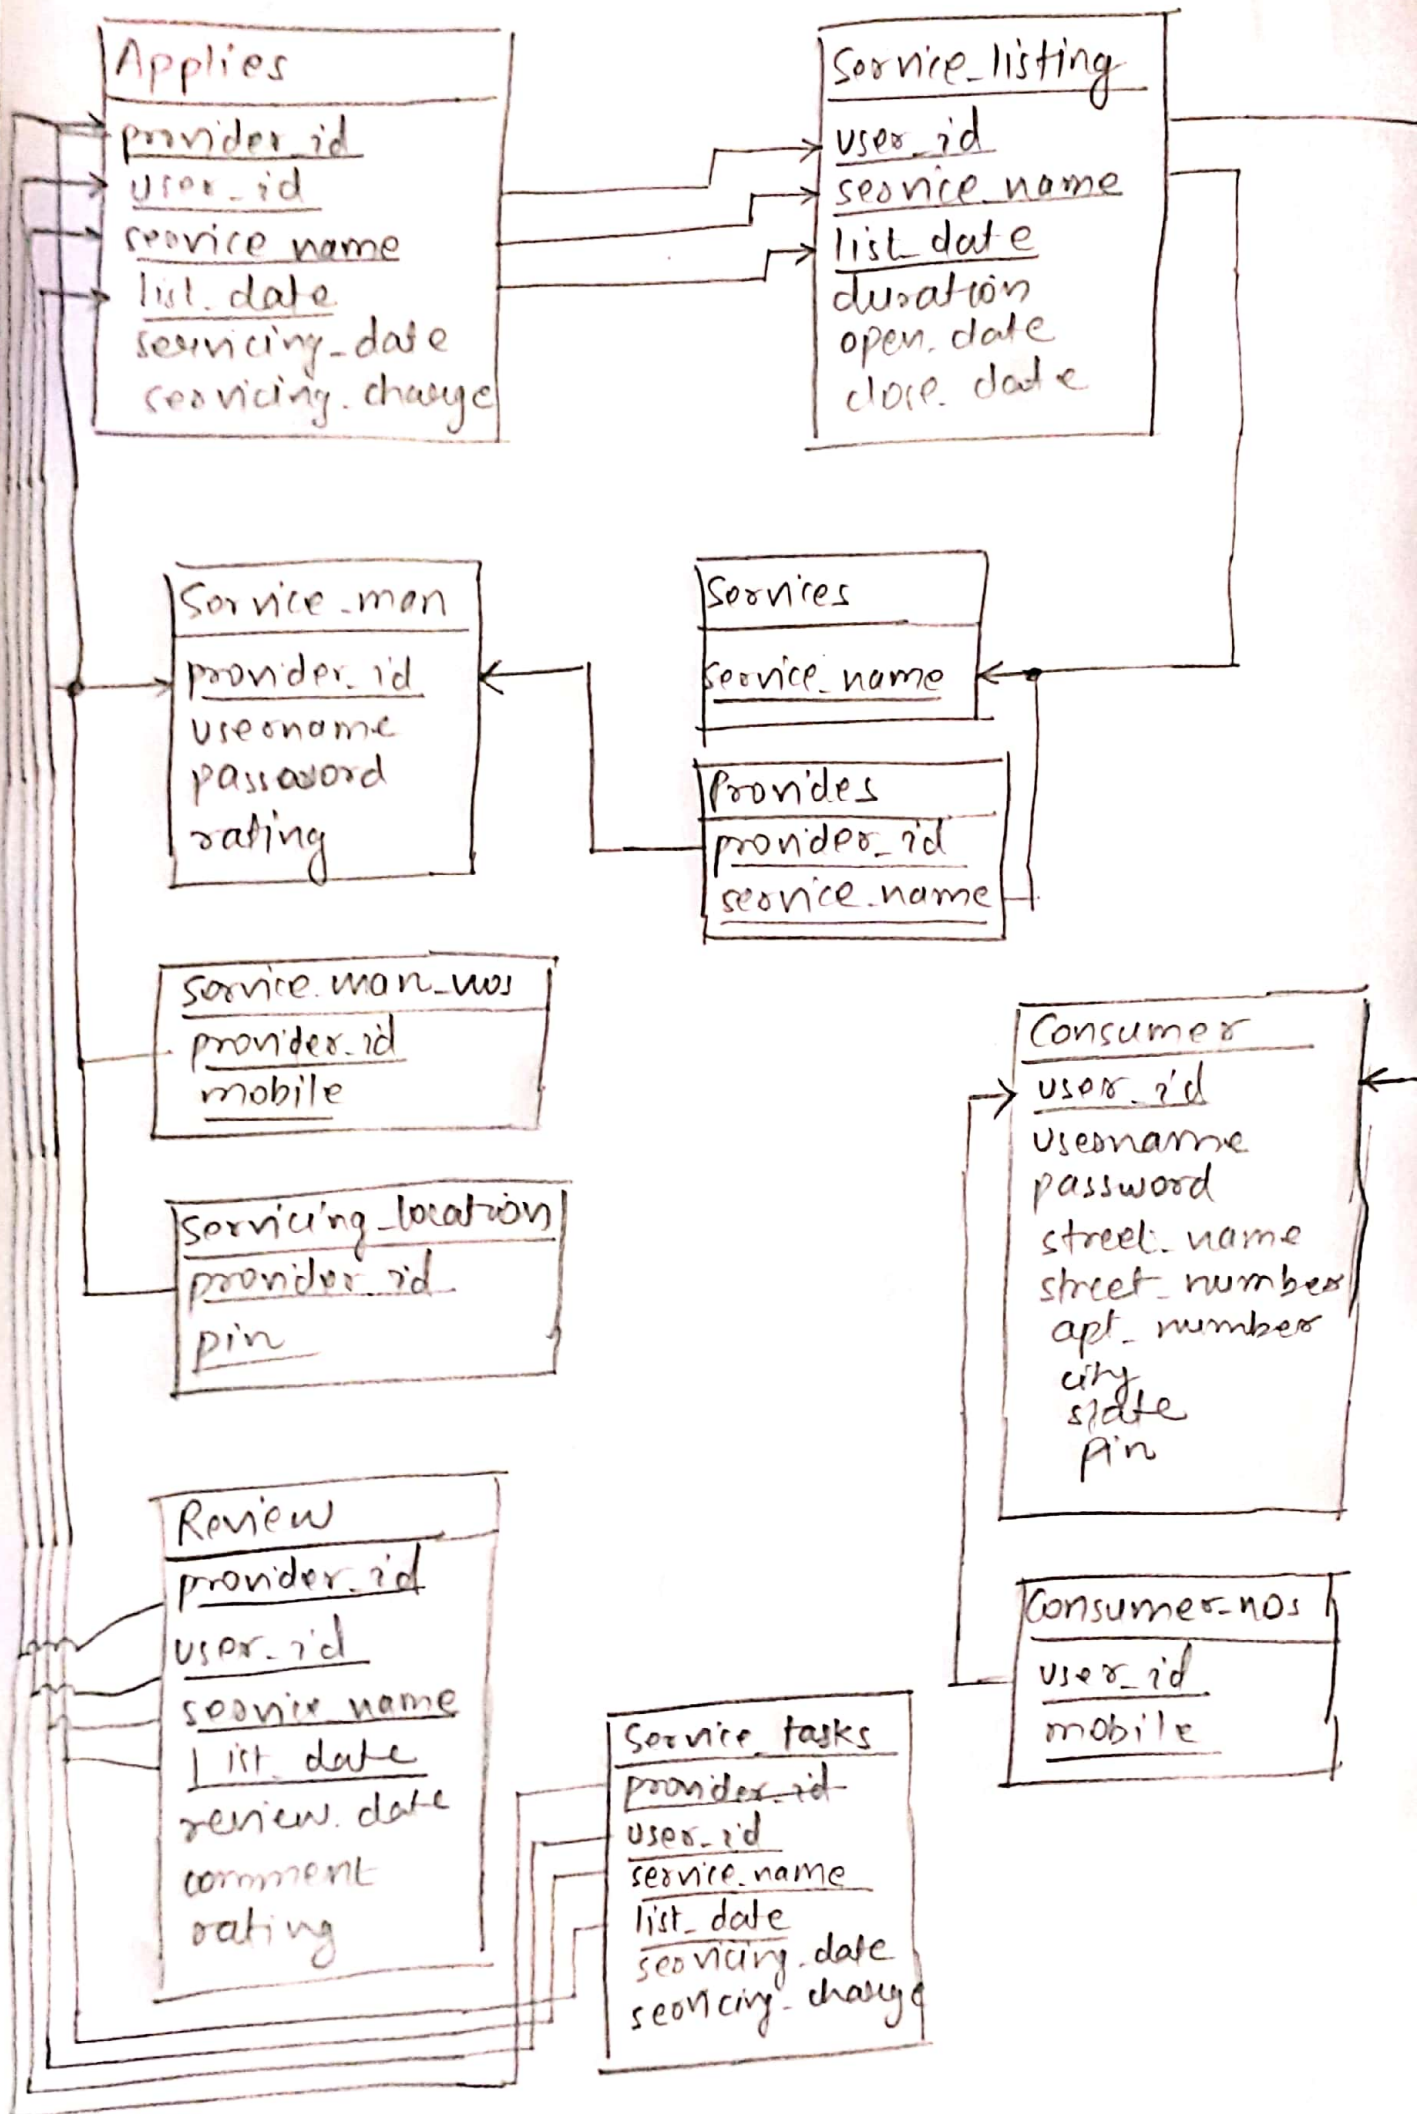 Applies
provider_id
user_id
service_name
list_date
servicing_date
servicing_charge
Service_listing
user_id
service_name
list_date
duration
open_date
close_date
Service_man
provider_id
username
password
rating
Services
service_name
Provides
provider_id
service_name
service_man_nos
provider_id
mobile
Servicing_location
provider_id
pin
Consumer
user_id
username
password
street_name
street_number
apt_number
city
state
pin
Review
provider_id
user_id
service_name
list_date
review_date
comment
rating
Service_tasks
provider_id
user_id
service_name
list_date
servicing_date
servicing_charge
Consumer_nos
user_id
mobile